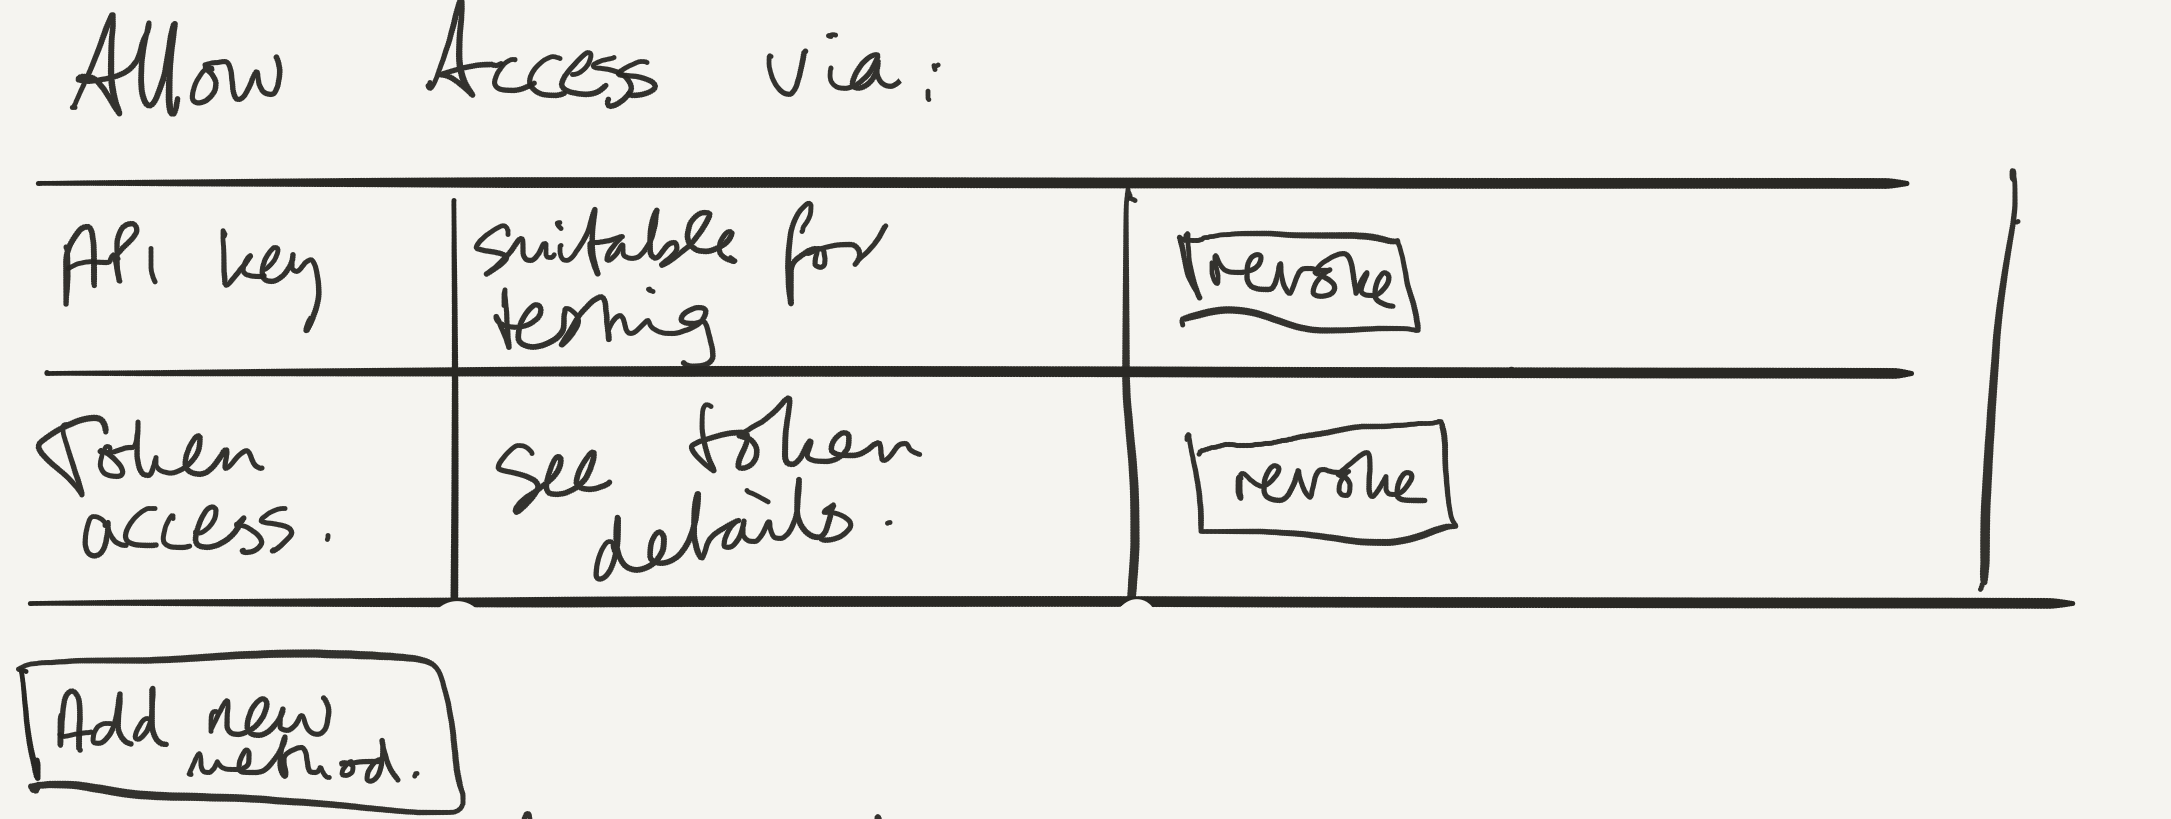 Allow Access via:
API key
suitable for
testing
revoke
Token
access.
see token
details.
revoke
Add new
method.